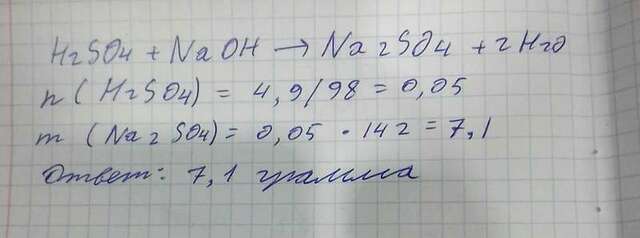 H2SO4 + NaOH → Na2SO4 + 2H2O
n (H2SO4) = 4,9/98 = 0,05
m (Na2SO4) = 0,05 · 142 = 7,1
Ответ: 7,1 грамма